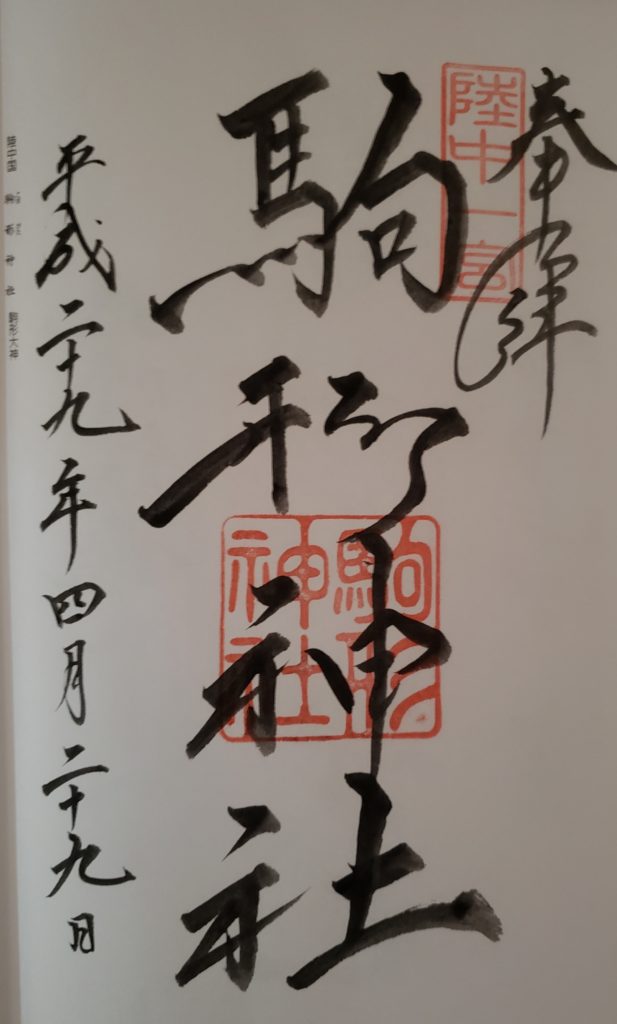 奉拝
陸中一宮
駒形神社
駒形神社
平成二十九年四月二十九日
陸中国 駒形神社 駒形大神